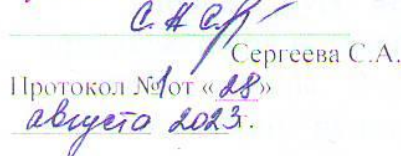 Сергеева С.А.
Протокол №1 от «28»
августа 2023г.